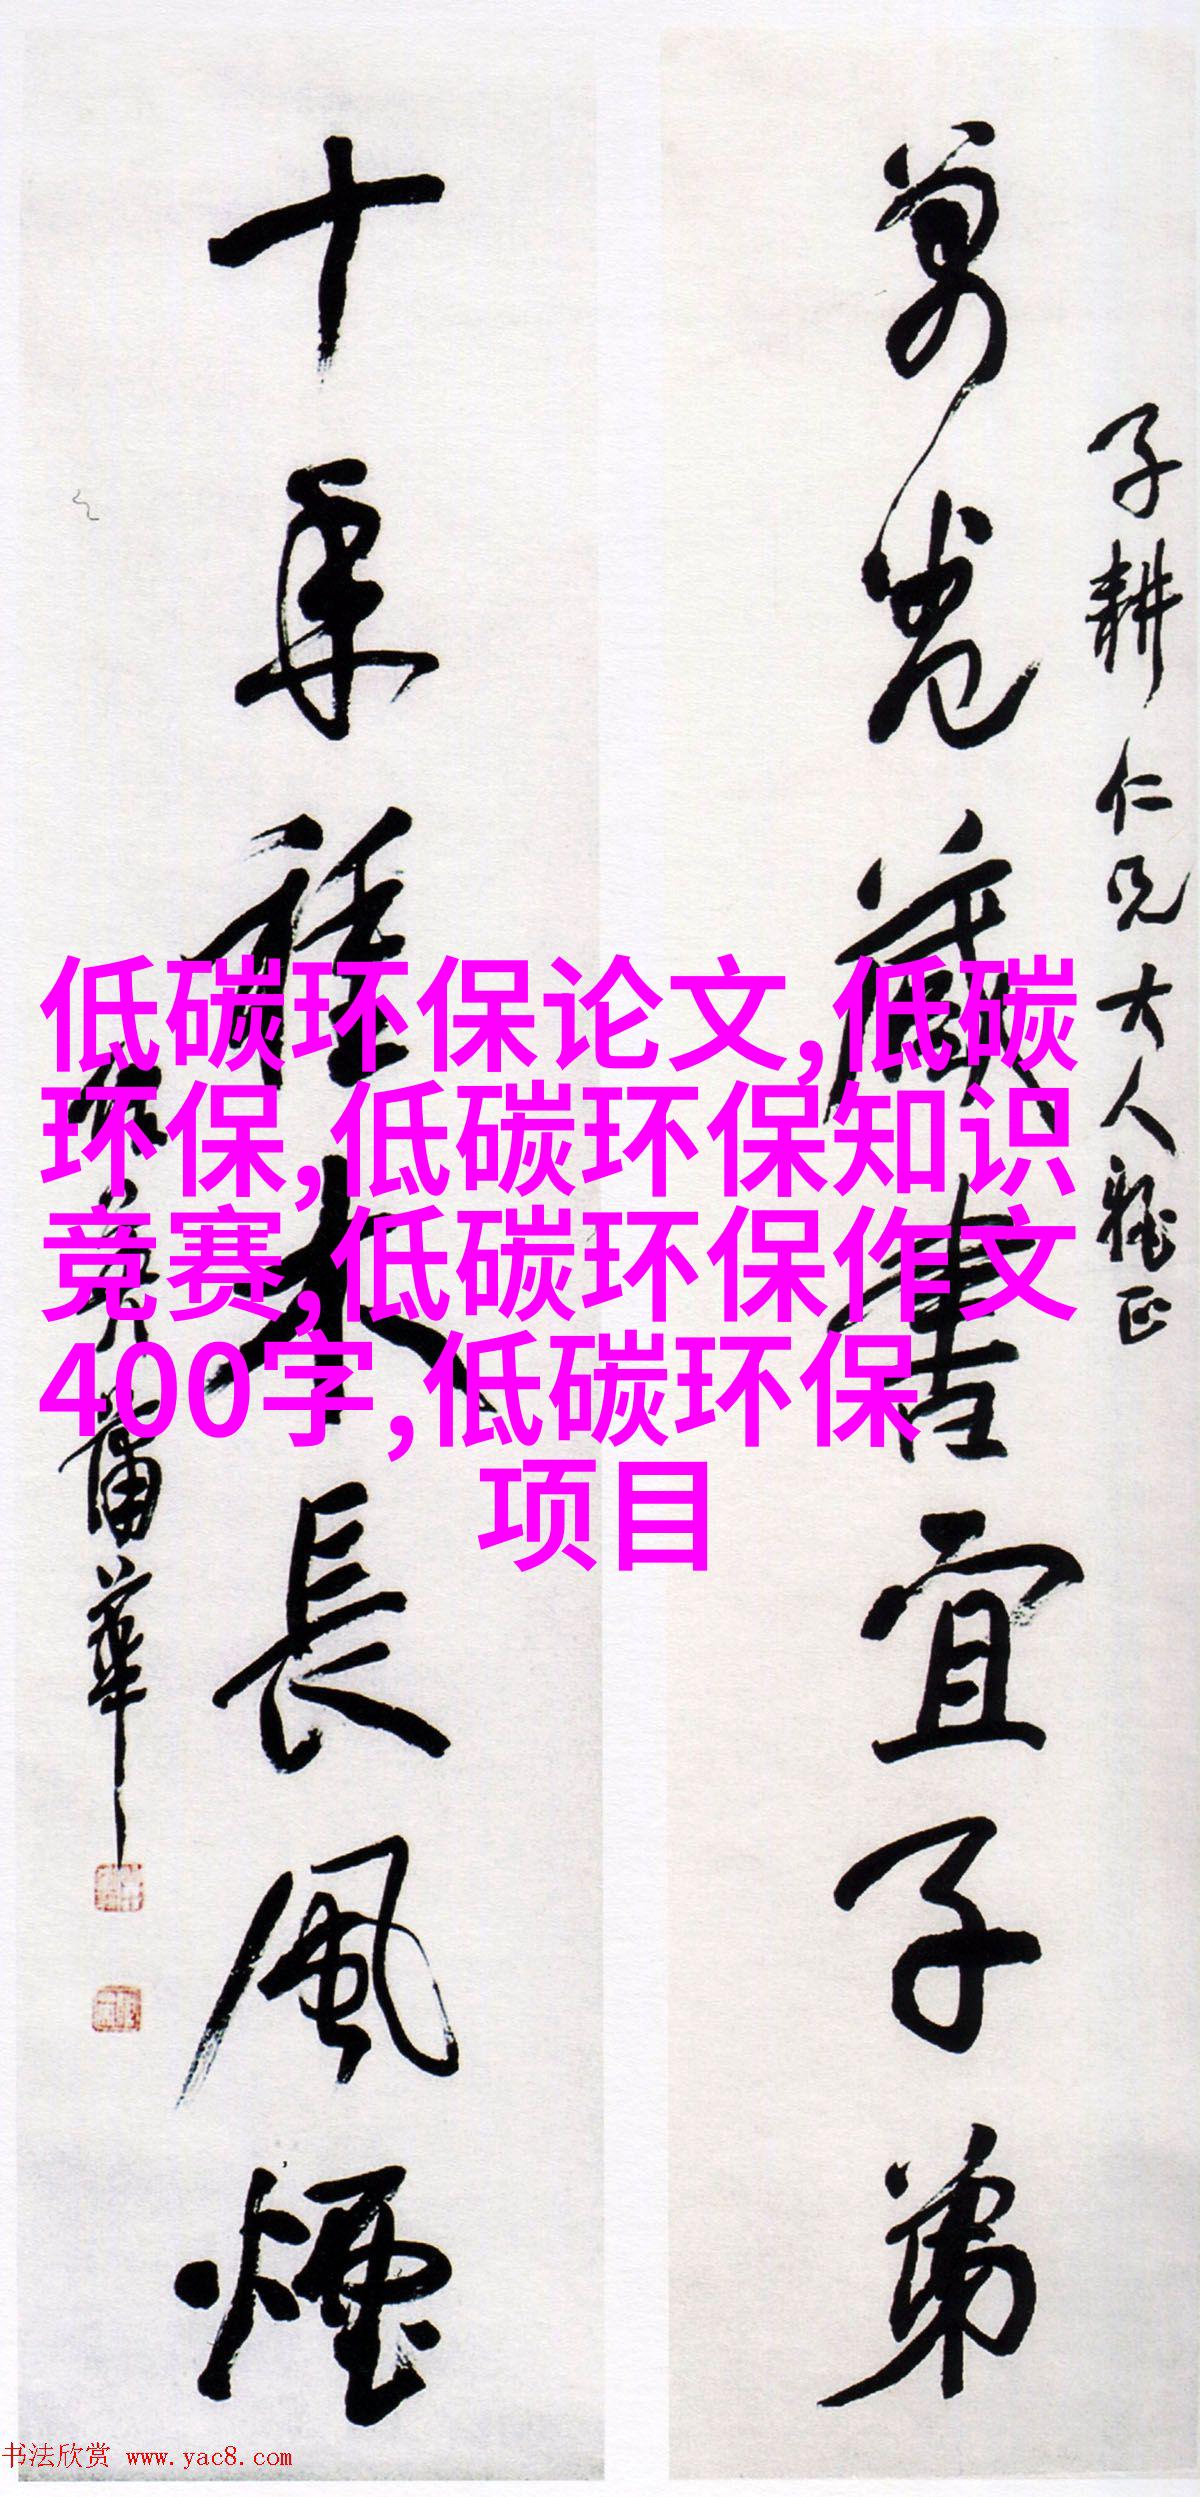 子耕仁兄大人雅正
萬卷藏書宜子弟
十年種木長風煙
蒲華
低碳环保论文,低碳
环保,低碳环保知识
竞赛,低碳环保作文
400字,低碳环保
项目
书法欣赏 www.yac8.com